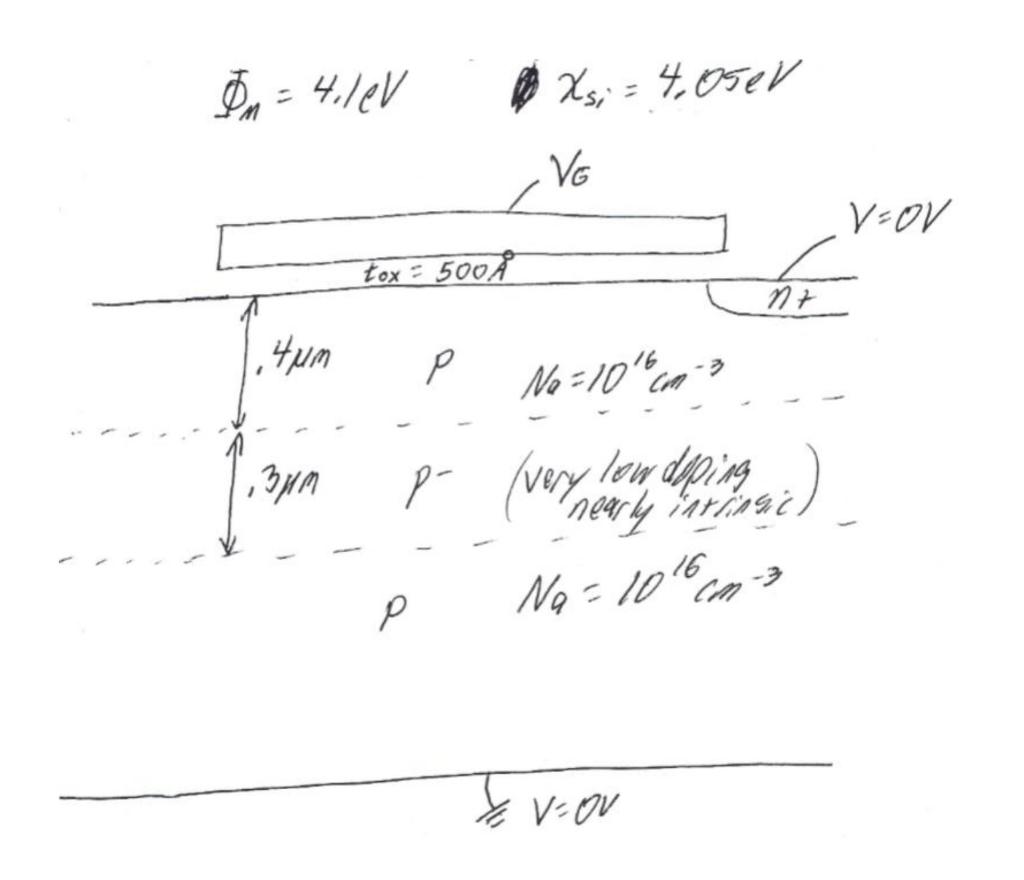 Φm = 4.1eV χsi = 4.05eV
VG
V=0V
tox = 500Å
n+
.4μm p Na = 10^16 cm^-3
.3μm p- (very low doping
nearly intrinsic)
p Na = 10^16 cm^-3
V=0V